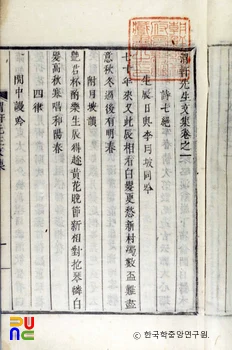 軒先生文集卷之一
詩七絕
生辰日與李月坡同吟
七十年來又此辰相看白髮更愁新村醪數盃難盡
意秋冬過後有明春
附月坡韻
君杯酌樂生辰科趂黃花晩節新相對琴憐白
髮高秋寒唱和陽春
四律
閒中謾吟
軒先生文集
한국학중앙연구원